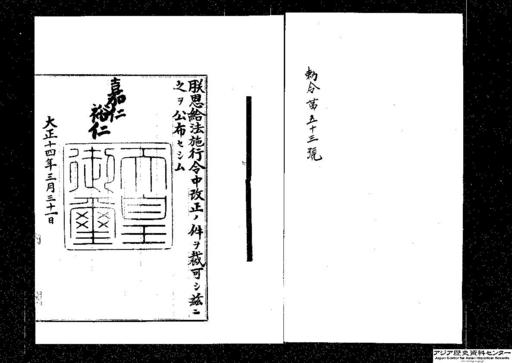 勅令第五十三號
朕恩給法施行令中改正ノ件ヲ裁可シ茲ニ
之ヲ公布セシム
嘉仁
裕仁
天皇
御璽
大正十四年三月三十一日
アジア歴史資料センター
Japan Center for Asian Historical Records